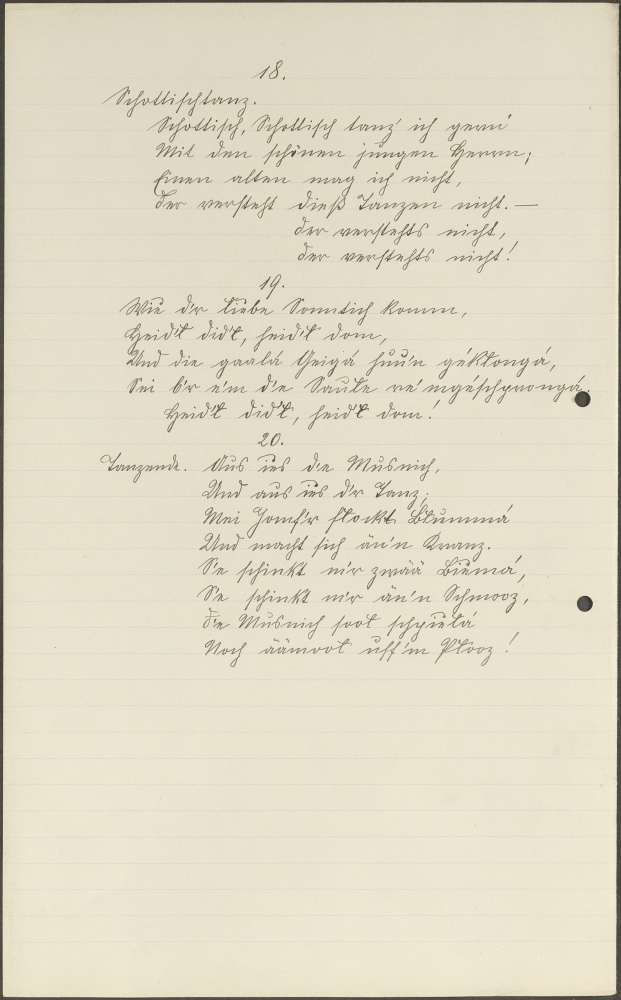 18.
Schottischtanz.
Schottisch, Schottisch tanz' ich gern'
Mit den schönen jungen Herrn;
Einen alten mag ich nicht,
Der versteht dieß Tanzen nicht. —
Der verstehts nicht,
Der verstehts nicht!
19.
Wie d'r liebe Sonntich komm,
Heid'l did'l, heid'l dom,
Und die gaalá Geigá huu'n géklongá,
Sei b'r e'm d'e Saule re'mgéschprongá.
Heid'l did'l, heid'l dom!
20.
Tanzende. Aus iés d'e Musnich,
Und aus iés d'r Tanz;
Mei Jomf'r flockt Blummá
Und macht sich än'n Kranz.
S'e schinkt m'r zwää Biémá,
S'e schinkt m'r än'n Schmooz,
D'e Musnich sool schpiélá
Noch äämool uff'm Plooz!